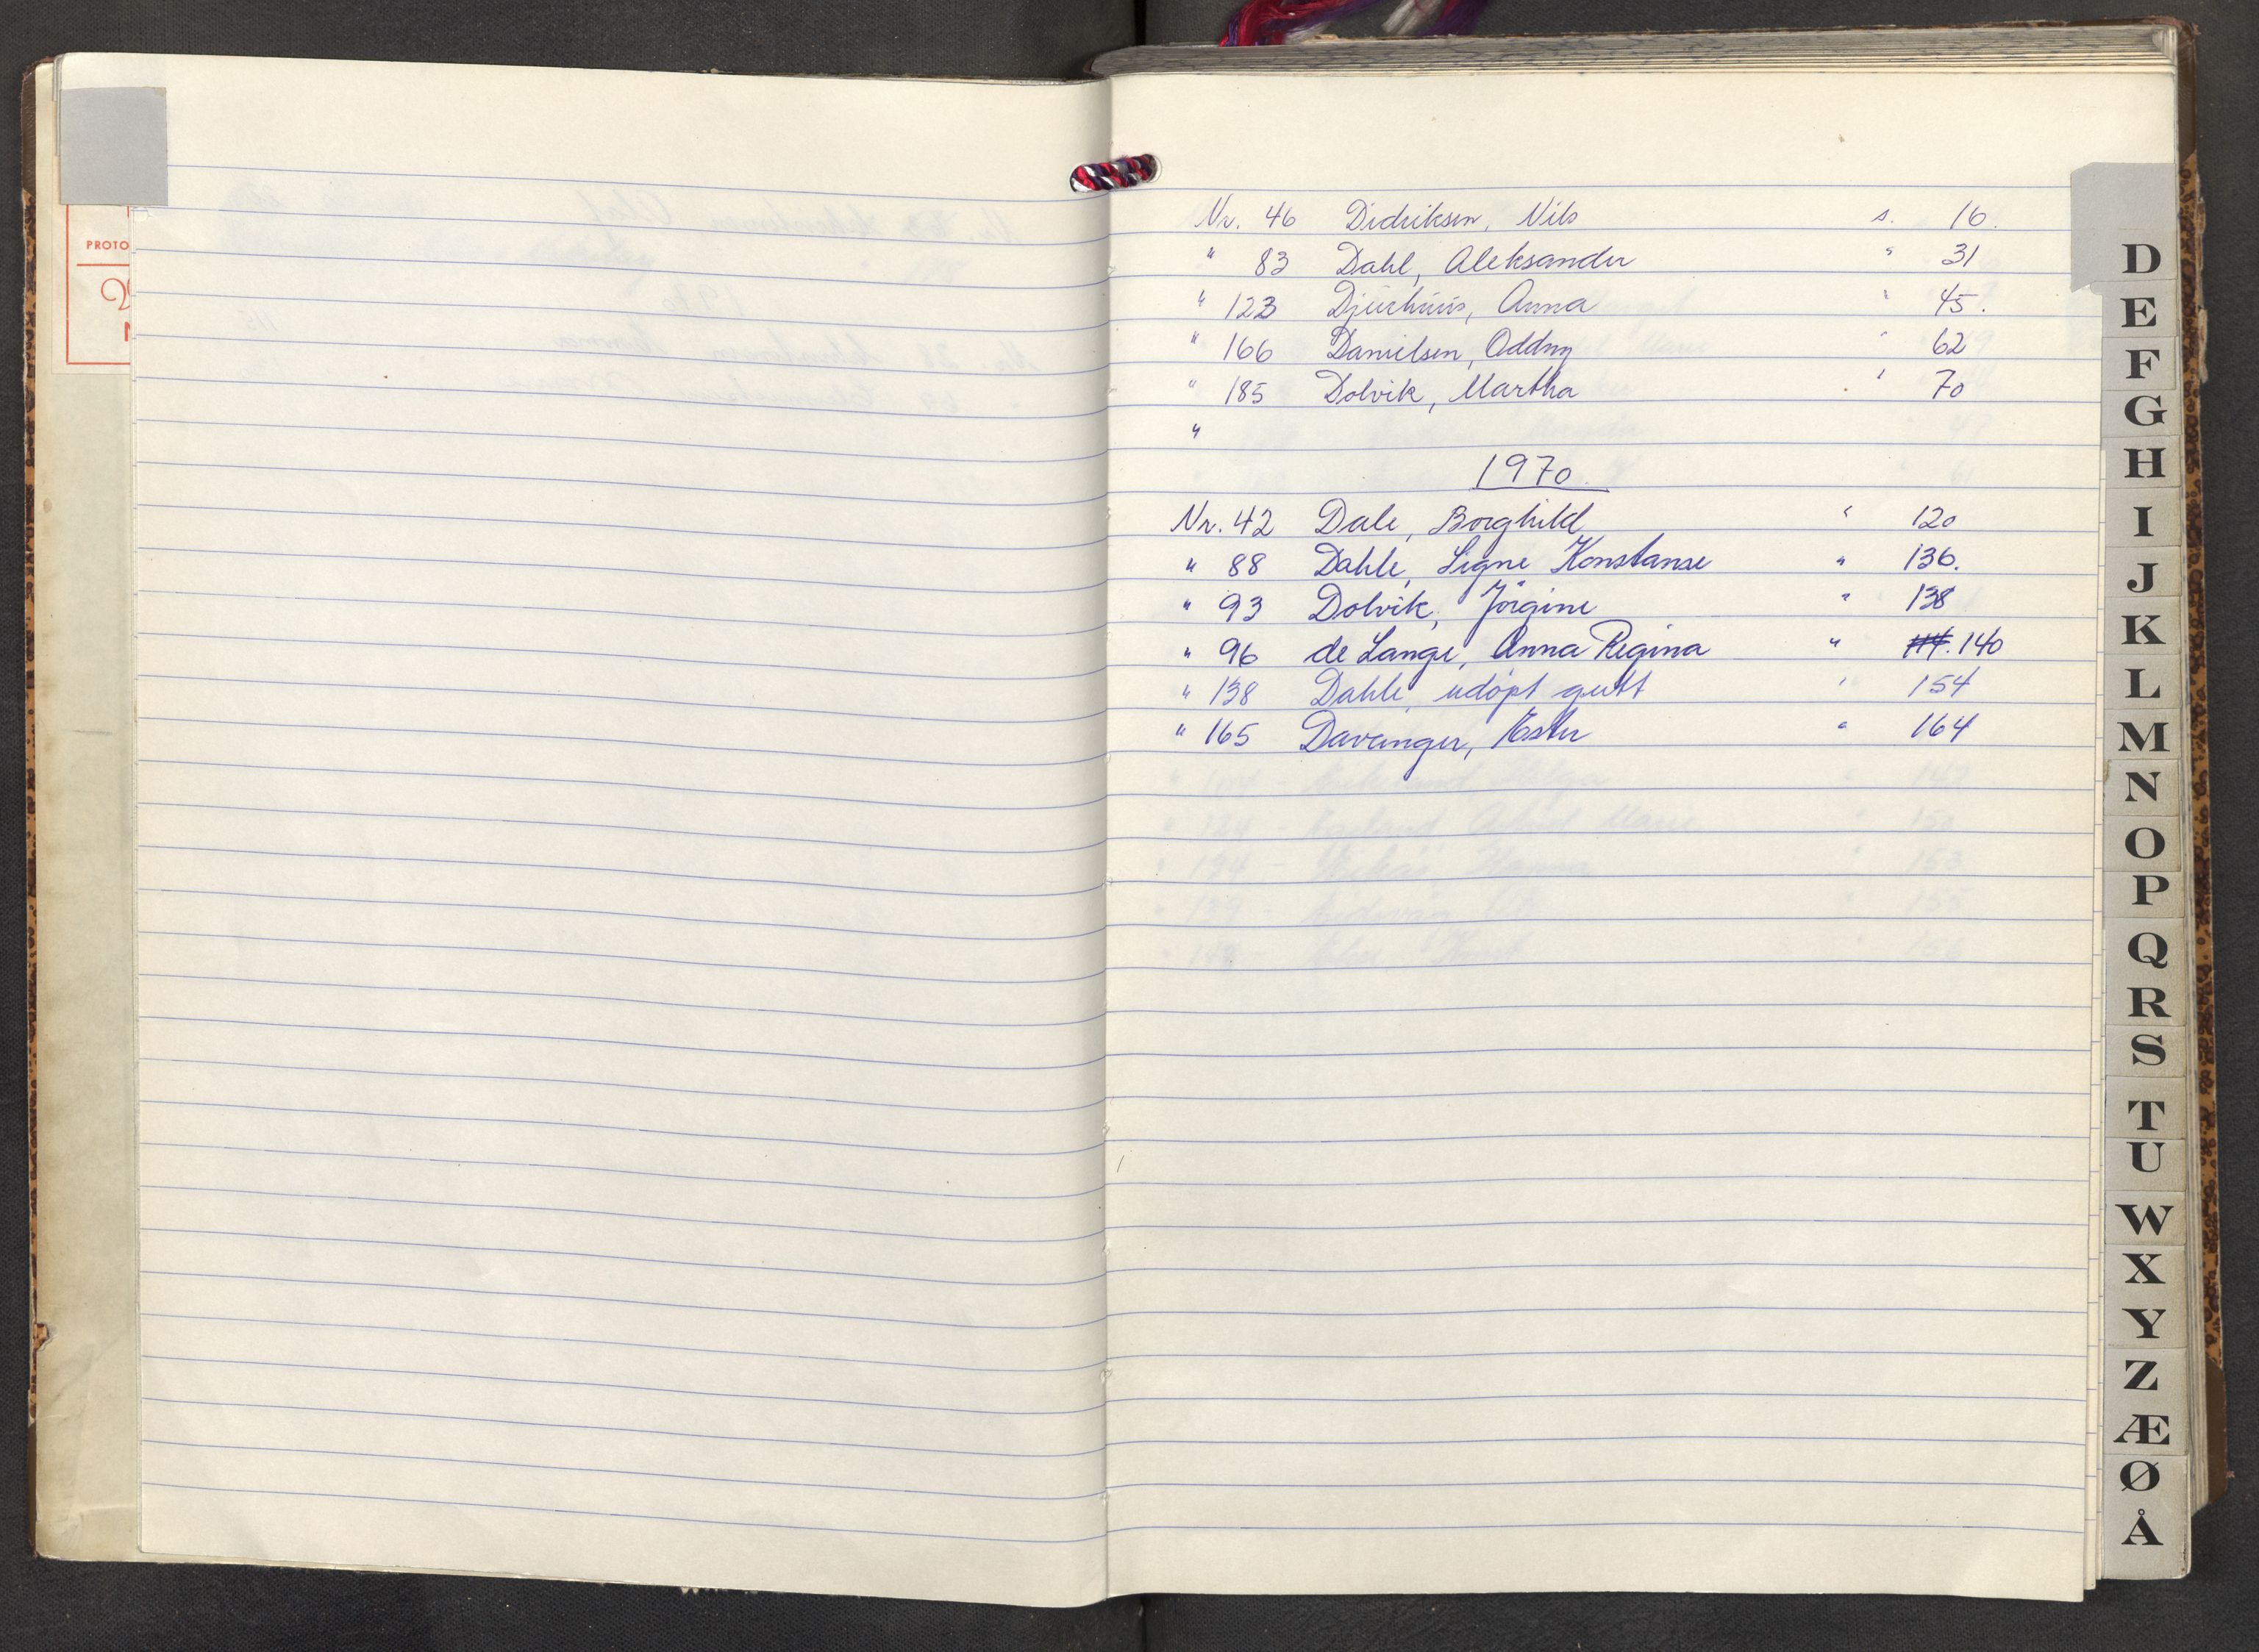 PROTO
Nr. 46 Didriksen, Nils s. 16.
" 83 Dahl, Aleksander " 31
" 123 Djurhuus, Anna " 45.
" 166 Danielsen, Oddny " 62
" 185 Dolvik, Martha " 70
"
1970.
Nr. 42 Dale, Borghild " 120
" 88 Dahle, Signe Konstanse " 136.
" 93 Dolvik, Jörgine " 138
" 96 de Lange, Anna Regina " 140
" 138 Dahle, udøpt gutt " 154
" 165 Davanger, Ester " 164
D
E
F
G
H
I
J
K
L
M
N
O
P
Q
R
S
T
U
W
X
Y
Z
Æ
Ø
Å